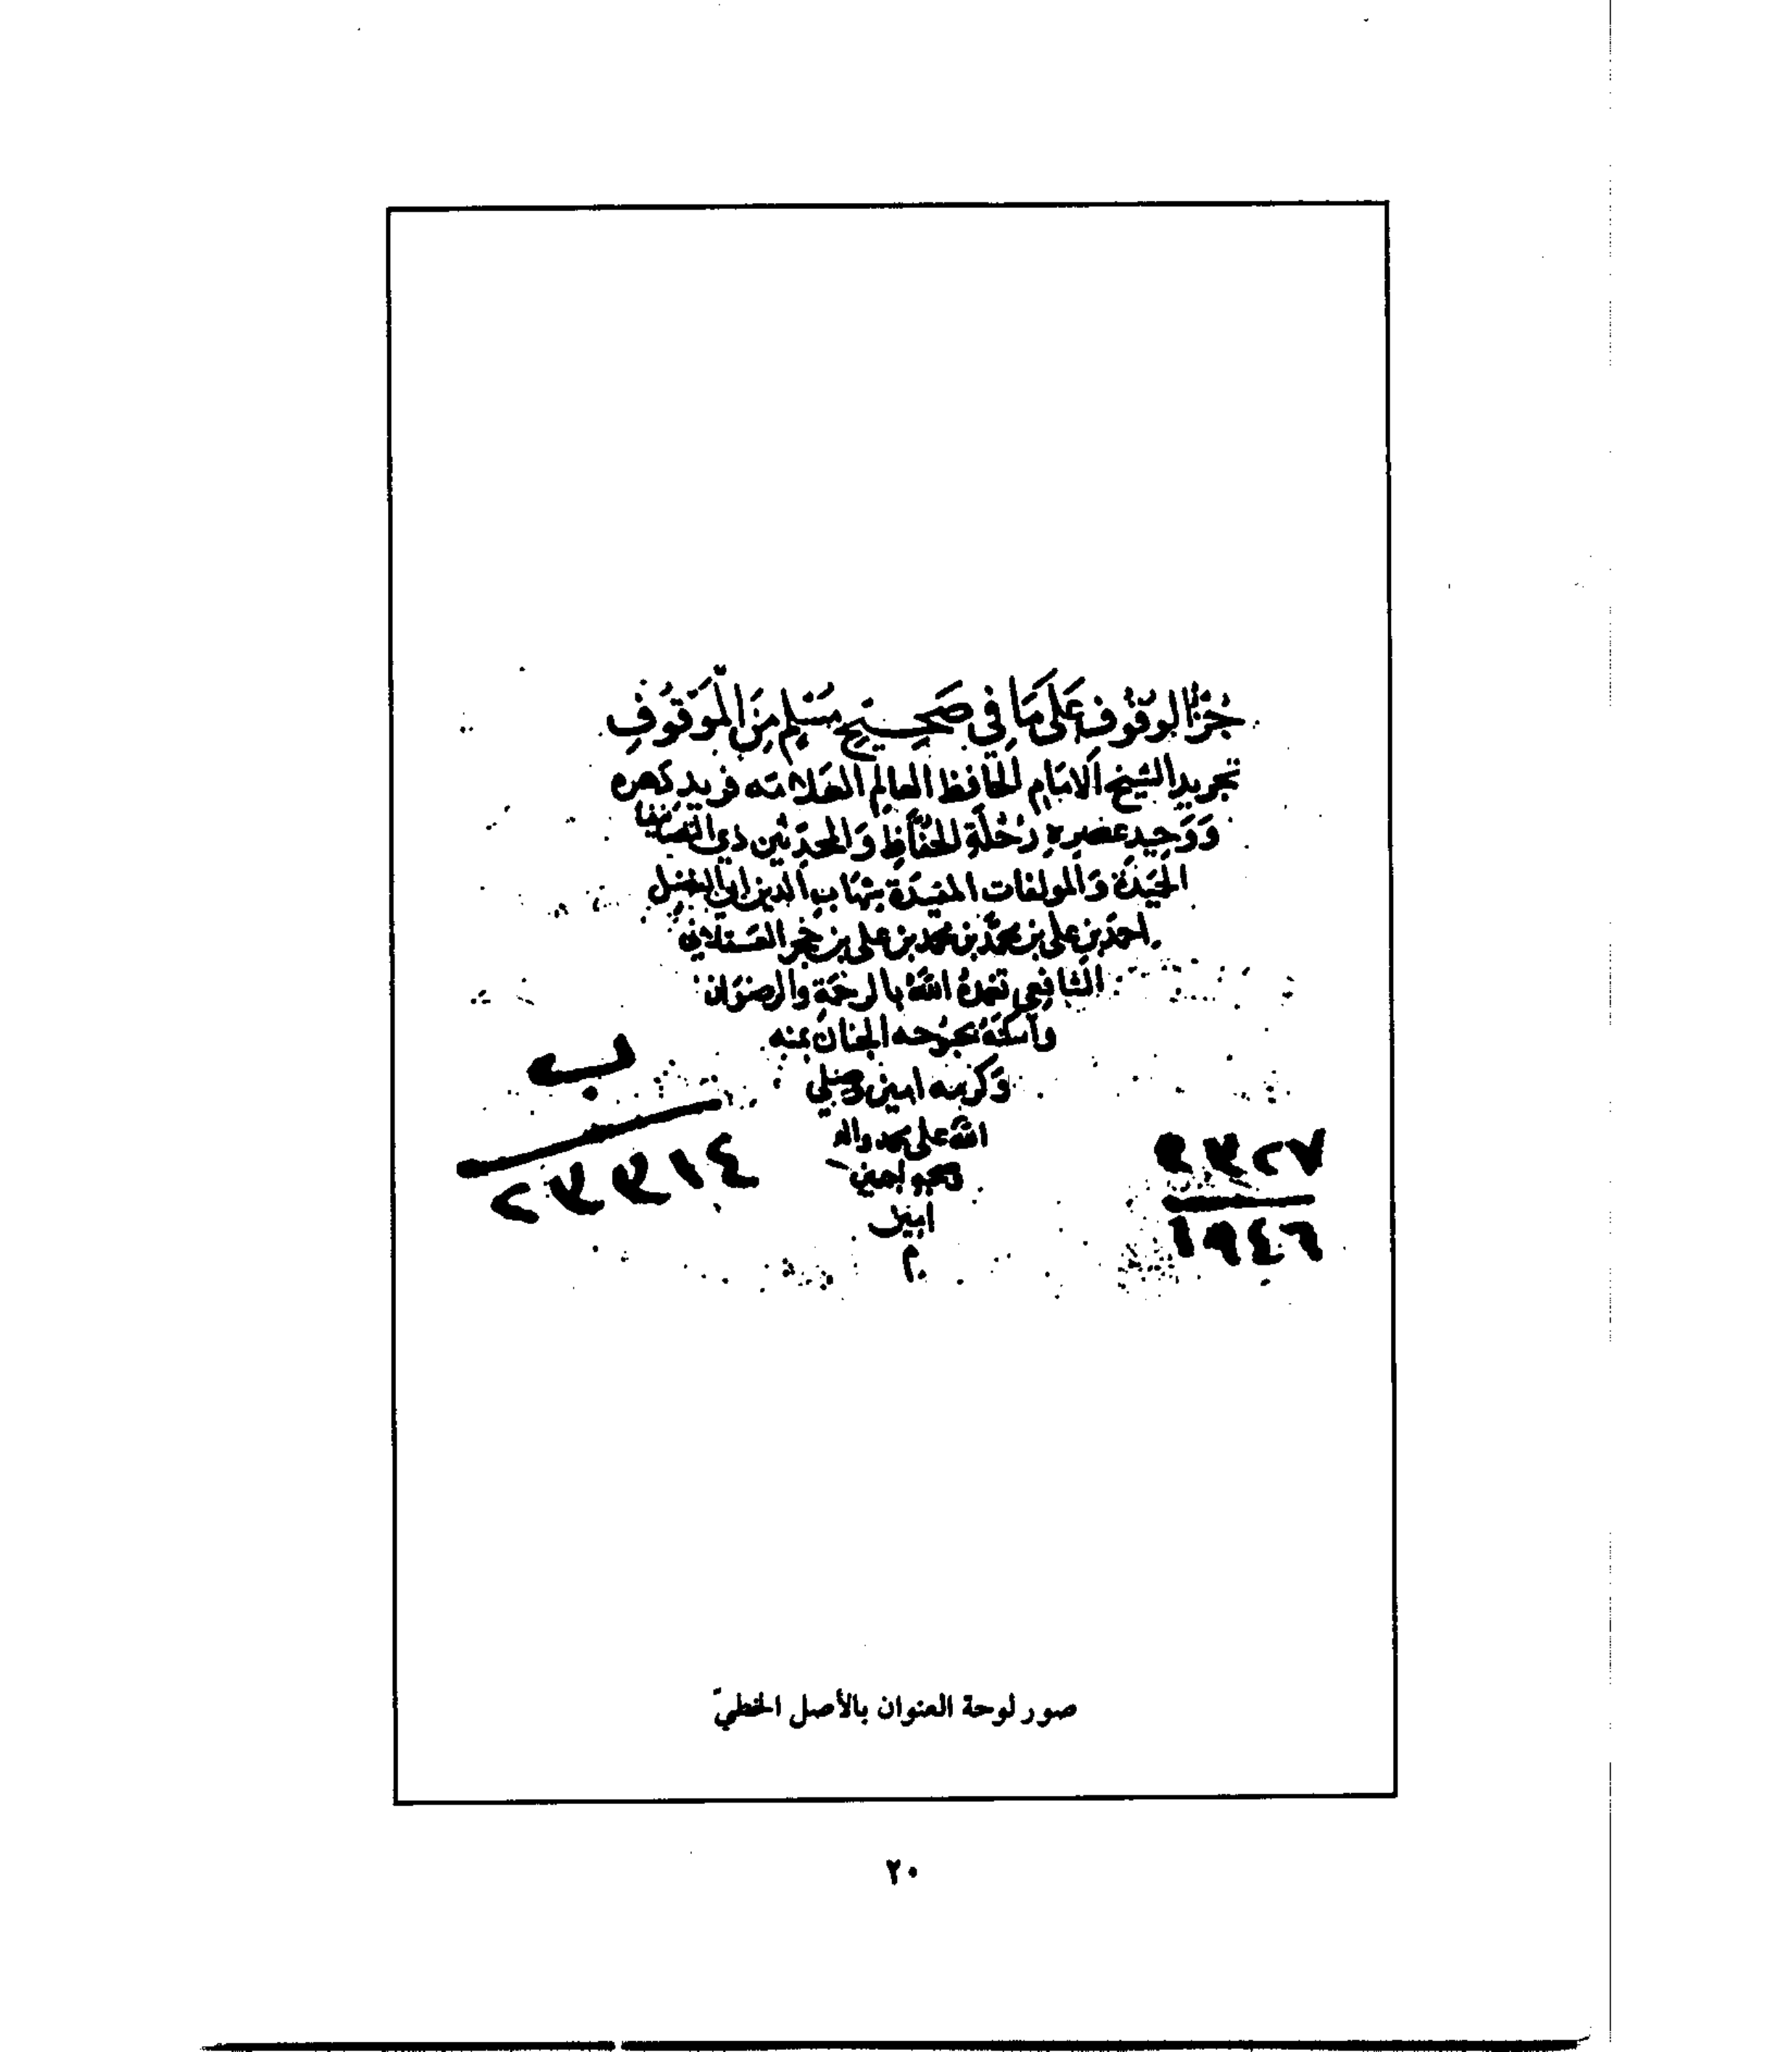 جُزْءُ الوقُوْفِ عَلَى مَا فِي صَحِيحِ مُسْلِمٍ مِنَ الْمَوْقُوفِ
تجريد الشيخ الامَام الحَافظ العَالم العَلامَه فريد دَهره
وَوَحِيد عَصْرِهِ رُحْلَةِ الحُفَّاظِ وَالمحدّثين ذي التصَانيف
الجَيّدَة وَالمولفات المفيدَة شهَاب الدين ابي الفضل
احمَد بن علي بن محمّد بن محمد بن علي بن حَجر العَسقلاني
الشافعي تغمدهُ اللّهُ بالرحمَة والرضوَان
وَاسكنهُ بحبُوحه الجنان بمنه
وَكرمه امين وصلي
اللّه على محمد واله
وصحبه اجمعين
امين
م
ب
٢٣٣١٤
٢٣٢٧
١٩٤٦
صور لوحة العنوان بالأصل الخطيّ
٢٠